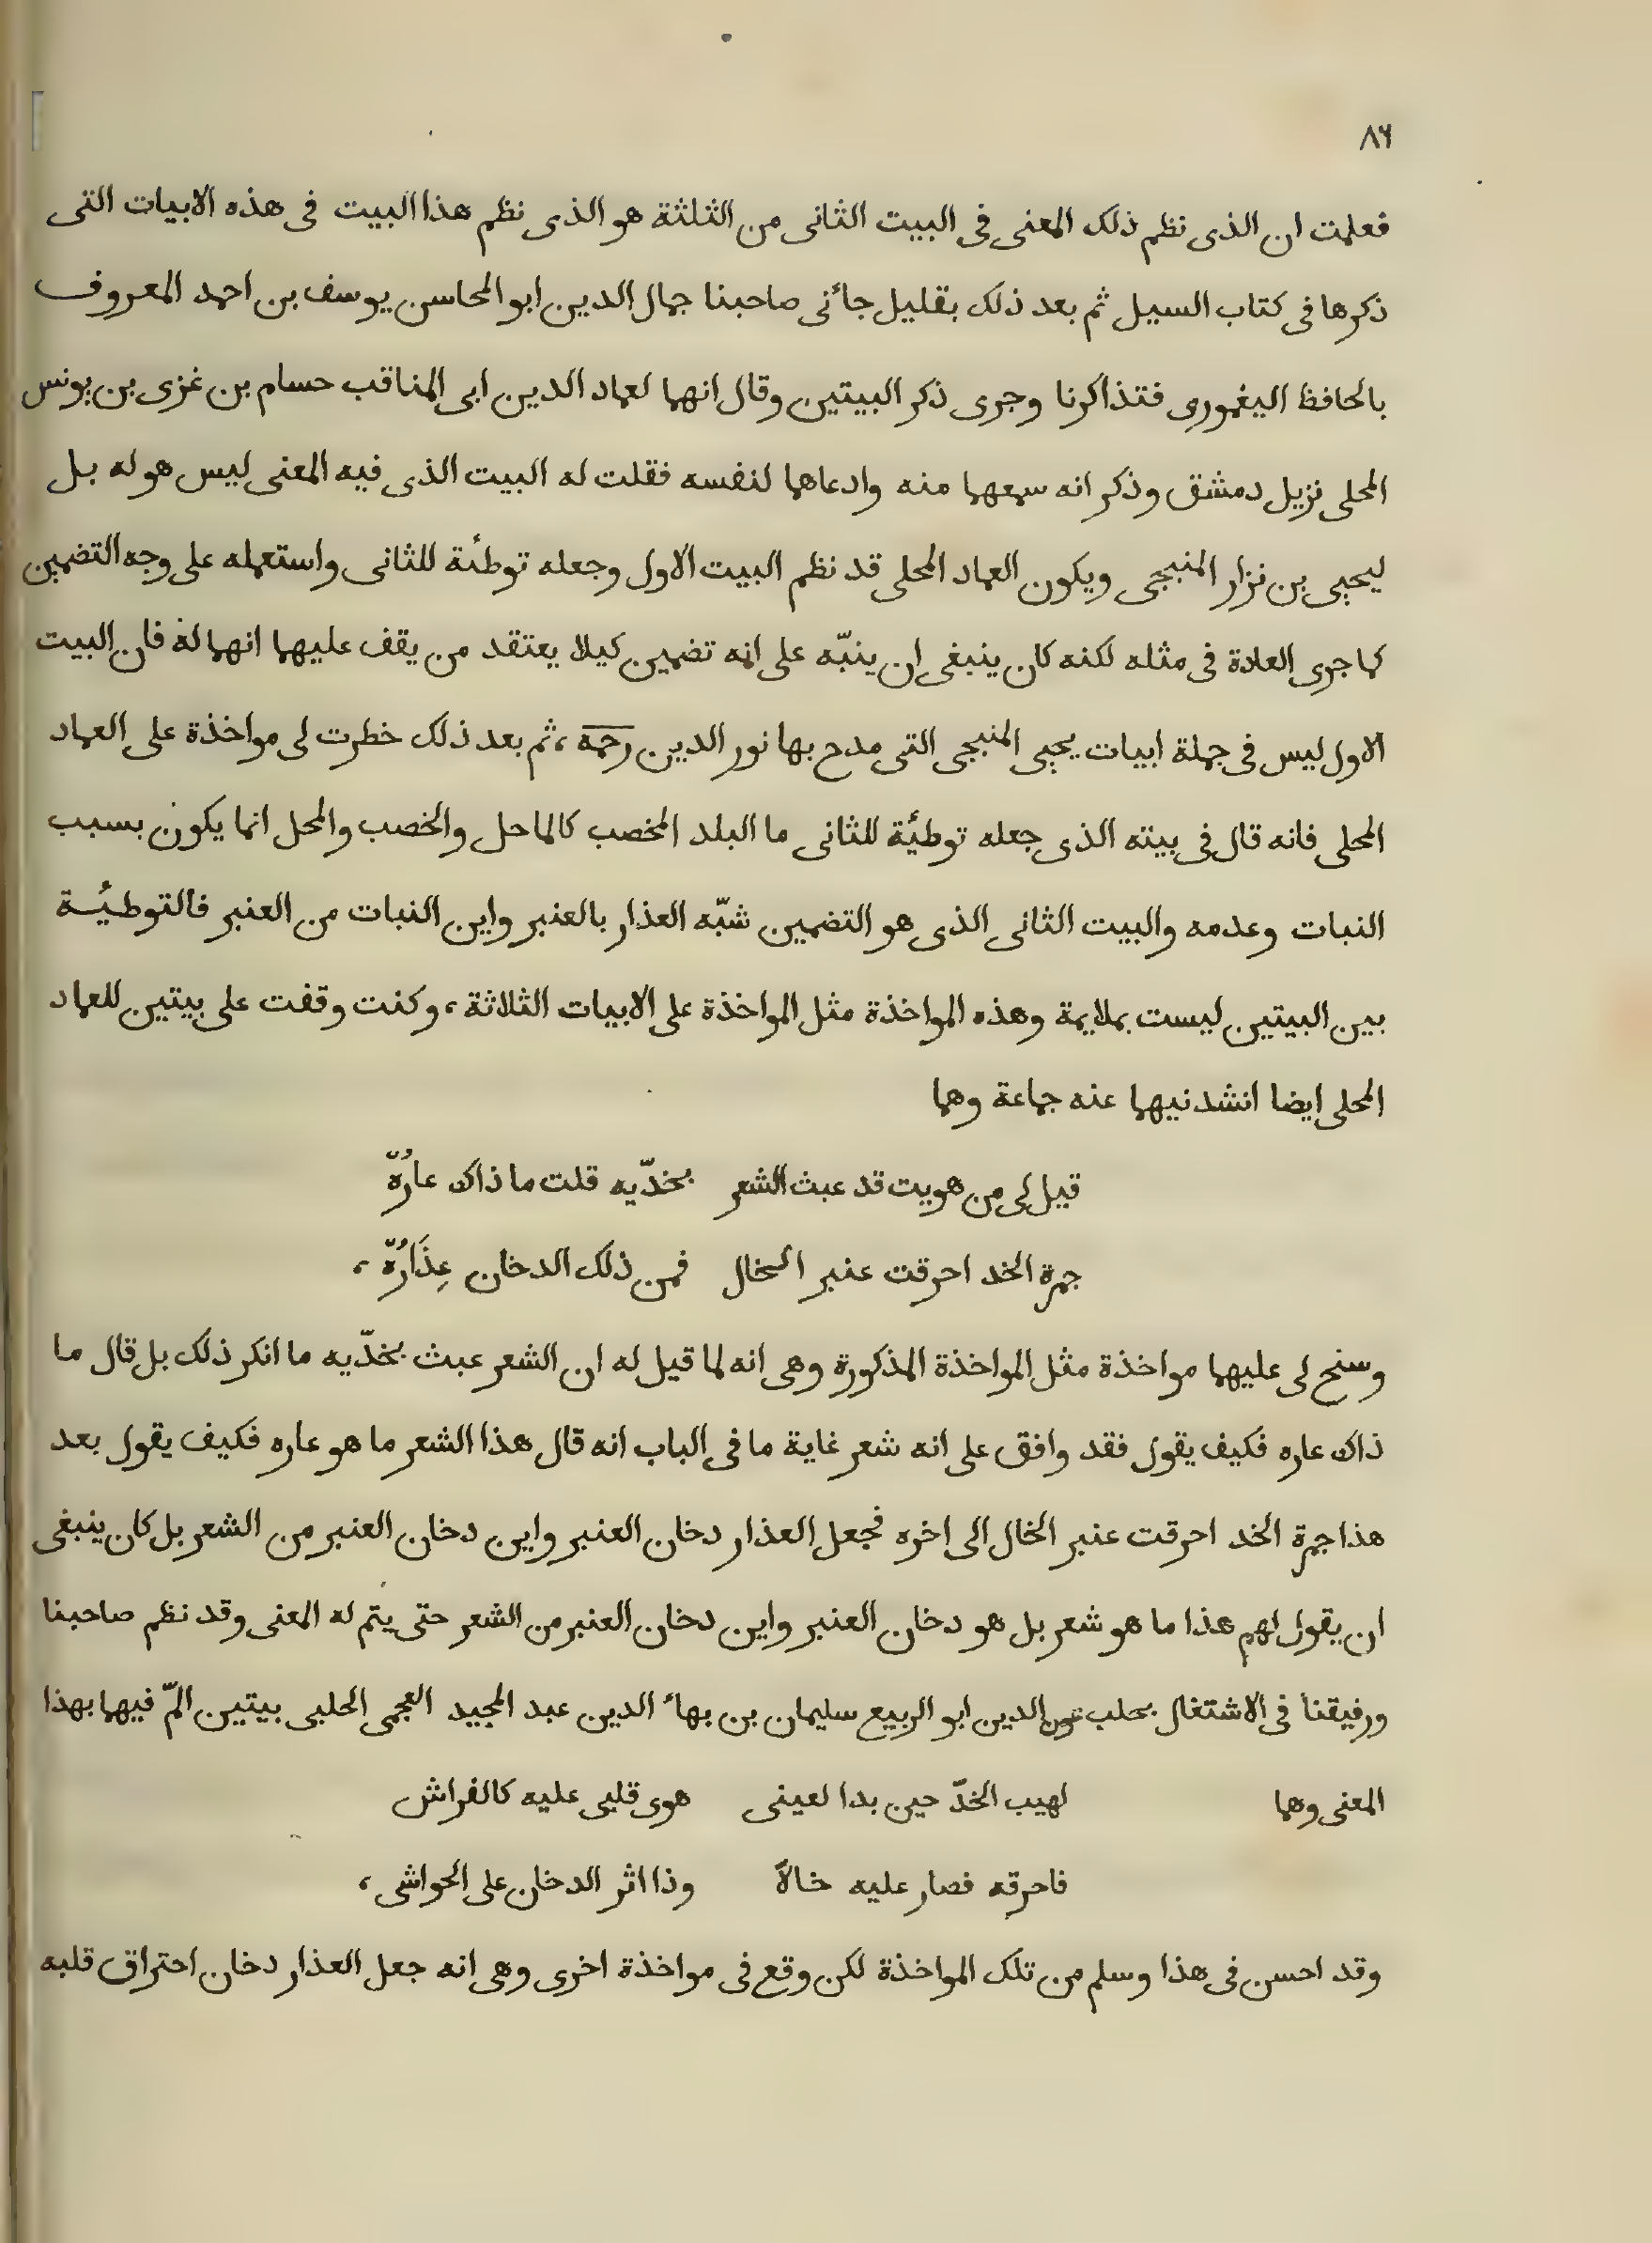 ٨٦
فعلمت ان الذى نظم ذلك المعنى فى البيت الثانى من الثلثة هو الذى نظم هذا البيت فى هذه الابيات التى
ذكرها فى كتاب السيل ثم بعد ذلك بقليل جائنى صاحبنا جمال الدين ابو المحاسن يوسف بن احمد المعروف
بالحافظ اليغمورى فتذاكرنا وجرى ذكر البيتين وقال انهما لعماد الدين ابى المناقب حسام بن غزى بن يونس
المحلى نزيل دمشق وذكر انه سمعهما منه وادعاهما لنفسه فقلت له البيت الذى فيه المعنى ليس هو له بل
ليحيى بن نزار المنبجى ويكون العماد المحلى قد نظم البيت الاول وجعله توطئة للثانى واستعمله على وجه التضمين
كما جرى العادة فى مثله لكنه كان ينبغى ان ينبّه على انه تضمين كيلا يعتقد من يقف عليهما انهما له فان البيت
الاول ليس فى جملة ابيات يحيى المنبجى التى مدح بها نور الدين رحمه ، ثم بعد ذلك خطرت لى مواخذة على العماد
المحلى فانه قال فى بيته الذى جعله توطئة للثانى ما البلد المخصب كالماحل والخصب والمحل انما يكون بسبب
النبات وعدمه والبيت الثانى الذى هو التضمين شبّه العذار بالعنبر واين النبات من العنبر فالتوطئة
بين البيتين ليست بملايمة وهذه المواخذة مثل المواخذة على الابيات الثلاثة ، وكنت وقفت على بيتين للعماد
المحلى ايضا انشدنيهما عنه جماعة وهما
قيل لى من هويت قد عبث الشعر بخدّيه قلت ما ذاك عارُهّ
جمرة الخد احرقت عنبر الخال فمن ذلك الدخان عِذَارُهّ ،
وسنح لى عليهما مواخذة مثل المواخذة المذكورة وهى انه لما قيل له ان الشعر عبث بخدّيه ما انكر ذلك بل قال ما
ذاك عاره فكيف يقول فقد وافق على انه شعر غاية ما فى الباب انه قال هذا الشعر ما هو عاره فكيف يقول بعد
هذا جمرة الخد احرقت عنبر الخال الى اخره فجعل العذار دخان العنبر واين دخان العنبر من الشعر بل كان ينبغى
ان يقول لهم هذا ما هو شعر بل هو دخان العنبر واين دخان العنبر من الشعر حتى يتم له المعنى وقد نظم صاحبنا
ورفيقنا فى الاشتغال بحلب عون الدين ابو الربيع سليمان بن بهاء الدين عبد المجيد العجمى الحلبى بيتين المّ فيهما بهذا
المعنى وهما لهيب الخدّ حين بدا لعينى هوى قلبى عليه كالفراش
فاحرقه فصار عليه خالاً وذا اثر الدخان على الحواشى ،
وقد احسن فى هذا وسلم من تلك المواخذة لكن وقع فى مواخذة اخرى وهى انه جعل العذار دخان احتراق قلبه